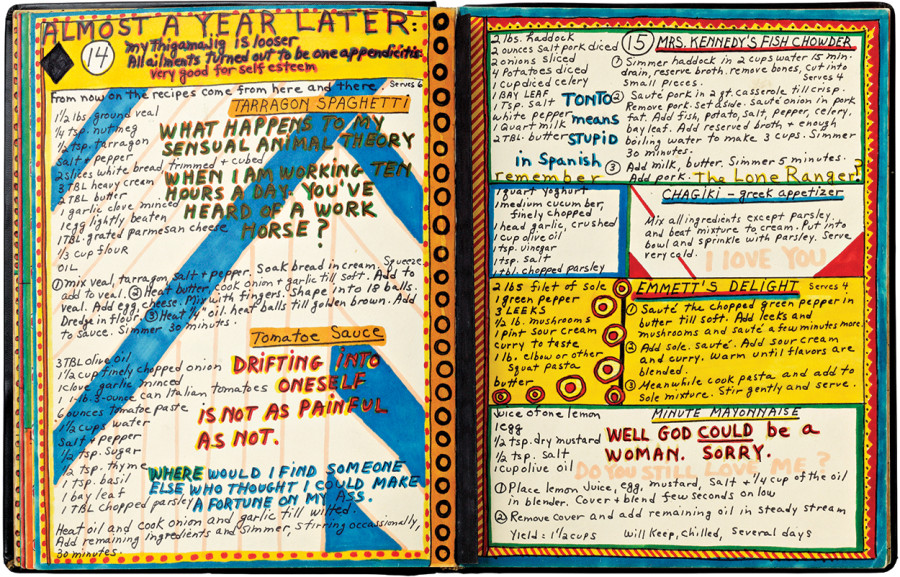 ALMOST A YEAR LATER:
14
my Thigamajig is looser
All ailments turned out to be one appendicitis
very good for self esteem
From now on the recipes come from here and there
Serves 6
TARRAGON SPAGHETTI
1½ lbs ground veal
¼ tsp. nutmeg
½ tsp. tarragon
Salt + pepper
2 slices white bread, trimmed + cubed
3 TBL heavy cream
2 TBL butter
1 garlic clove minced
1 egg lightly beaten
1 TBL grated parmesan cheese
⅓ cup flour
OIL
WHAT HAPPENS TO MY
SENSUAL ANIMAL THEORY
WHEN I AM WORKING TEN
HOURS A DAY. YOU'VE
HEARD OF A WORK
HORSE?
① mix veal, tarragon, salt + pepper. Soak bread in cream. Squeeze
add to veal. ② Heat butter, cook onion + garlic till soft. Add to
veal. Add egg, cheese. Mix with fingers. Shape into 18 balls.
Dredge in flour. ③ Heat ¼" oil. heat balls till golden brown. Add
to sauce. Simmer 30 minutes.
Tomatoe Sauce
3 TBL olive oil
1½ cup finely chopped onion
1 clove garlic minced
1 lb. 3-ounce can Italian tomatoes
6 ounces tomatoe paste
1½ cups water
Salt + pepper
½ tsp. sugar
½ tsp. thyme
1 tsp. basil
1 bay leaf
1 TBL chopped parsley
DRIFTING INTO
ONESELF
IS NOT AS PAINFUL
AS NOT.
WHERE WOULD I FIND SOMEONE
ELSE WHO THOUGHT I COULD MAKE
A FORTUNE ON MY ASS.
Heat oil and cook onion and garlic till wilted.
Add remaining ingredients and simmer, stirring occassionally,
30 minutes.
15
MRS. KENNEDY'S FISH CHOWDER
2 lbs. haddock
2 ounces salt pork diced
2 onions sliced
4 Potatoes diced
1 cup diced celery
1 BAY LEAF
1 Tsp. salt
white pepper
1 Quart milk
2 TBL butter
TONTO
means
STUPID
in Spanish
remember
The Lone Ranger?
① Simmer haddock in 2 cups water 15 min.
drain, reserve broth. remove bones, cut into
small pieces.
Serves 4
② Sauté pork in 2 qt. casserole till crisp.
Remove pork. set aside. sauté onion in pork
fat. Add fish, potato, salt, pepper, celery,
bay leaf. Add reserved broth + enough
boiling water to make 3 cups. Simmer
30 minutes.
③ Add milk, butter. Simmer 5 minutes.
Add pork.
CHAGIKI - greek appetizer
1 quart yoghurt
1 medium cucumber,
finely chopped
1 head garlic, crushed
1 cup olive oil
1 tsp. vinegar
1 tsp. salt
1 tbl. chopped parsley
Mix all ingredients except parsley
and beat mixture to cream. Put into
bowl and sprinkle with parsley. Serve
very cold.
I LOVE YOU
EMMETT'S DELIGHT
Serves 4
2 lbs filet of sole
1 green pepper
3 LEEKS
½ lb. mushrooms
1 pint sour cream
curry to taste
1 lb. elbow or other
squat pasta
butter
① Sauté the chopped green pepper in
butter till soft. Add leeks and
mushrooms and sauté a few minutes more.
② Add sole. sauté. Add sour cream
and curry. Warm until flavors are
blended.
③ Meanwhile cook pasta and add to
Sole mixture. Stir gently and serve.
MINUTE MAYONNAISE
juice of one lemon
1 egg
½ tsp. dry mustard
½ tsp. salt
1 cup olive oil
WELL GOD COULD be a
WOMAN. SORRY.
DO YOU STILL LOVE ME?
① Place lemon juice, egg, mustard, salt + ¼ cup of the oil
in blender. Cover + blend few seconds on low
② Remove cover and add remaining oil in steady stream
Yield = 1½ cups
Will Keep, Chilled, Several days